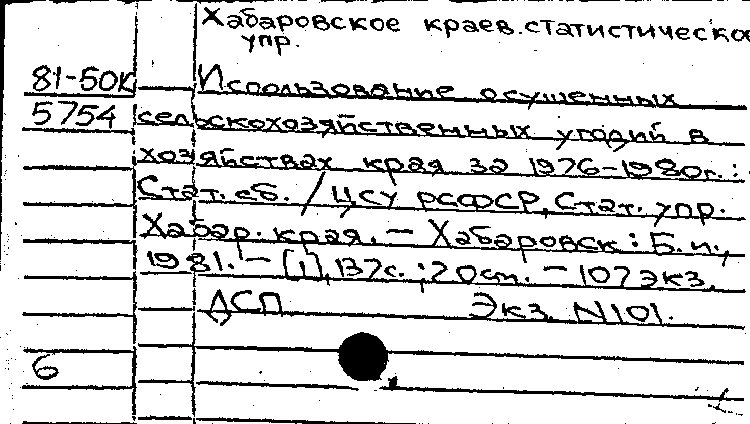 Хабаровское краев. статистическое
упр.
81-50к Использование осушенных
5754 сельскохозяйственных угодий в
хозяйствах края за 1976-1980г.:
Стат. сб. / ЦСУ РСФСР, Стат. упр.
Хабар. края. - Хабаровск: Б.и.,
1981. - [1], 137с.; 20см. - 107 экз.
ДСП Экз. N101.
6